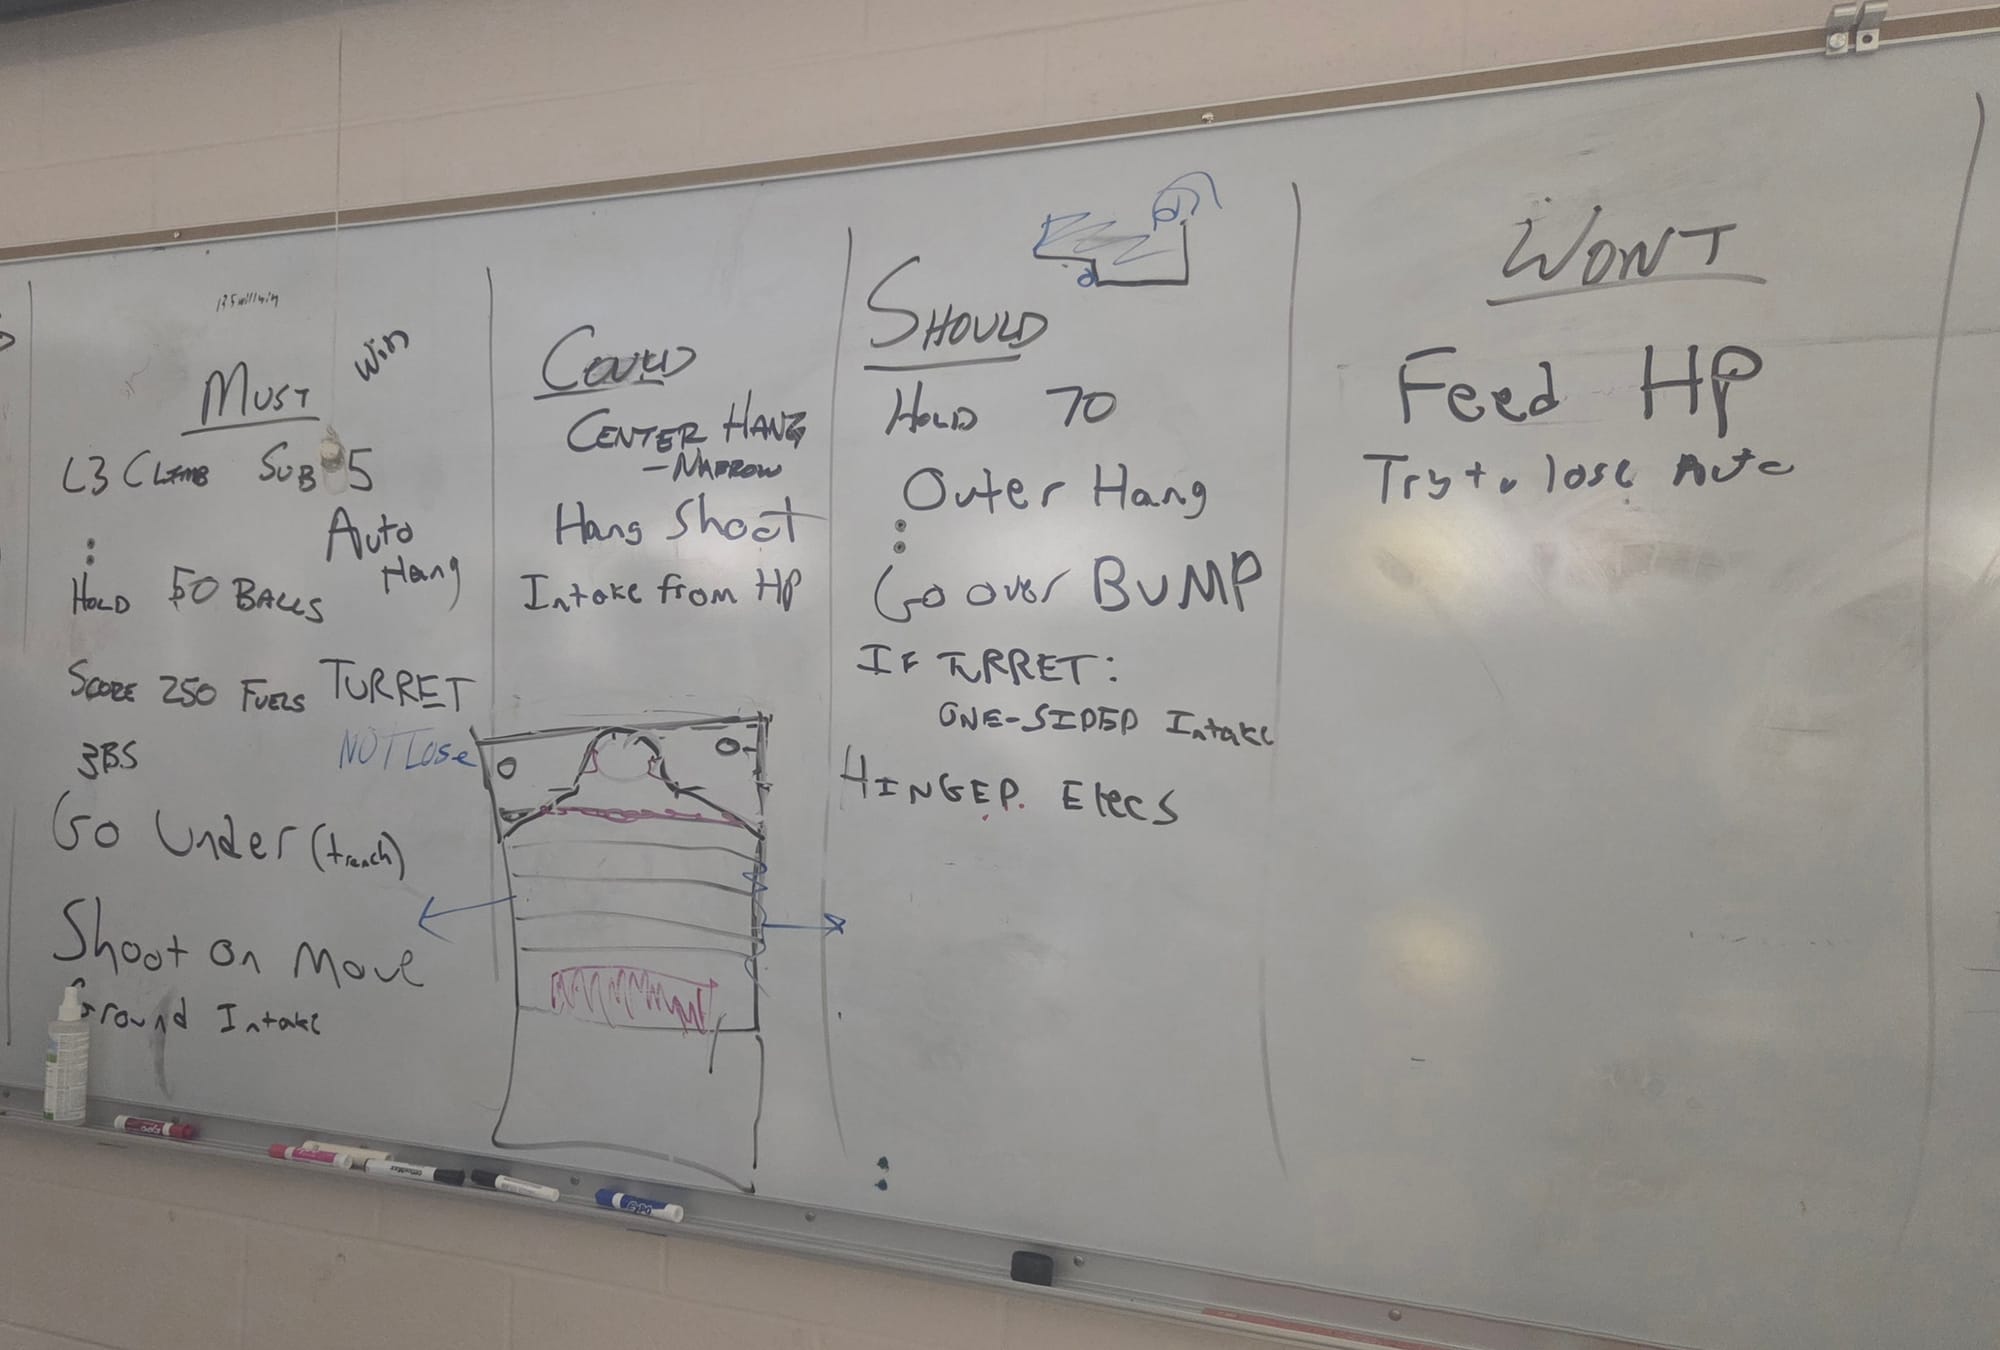 Win
MUST
L3 CLIMB SUB 5
Auto
Hang
HOLD 50 BALLS
SCORE 250 FUELS TURRET
NOT Lose
3BS
Go Under (trench)
Shoot On Move
Ground Intake
COULD
CENTER HANG
- NARROW
Hang Shoot
Intake from HP
SHOULD
HOLD 70
Outer Hang
Go over BUMP
IF TURRET:
ONE-SIDED Intake
HINGED Elecs
WONT
Feed HP
Try to lose Auto
EXPO